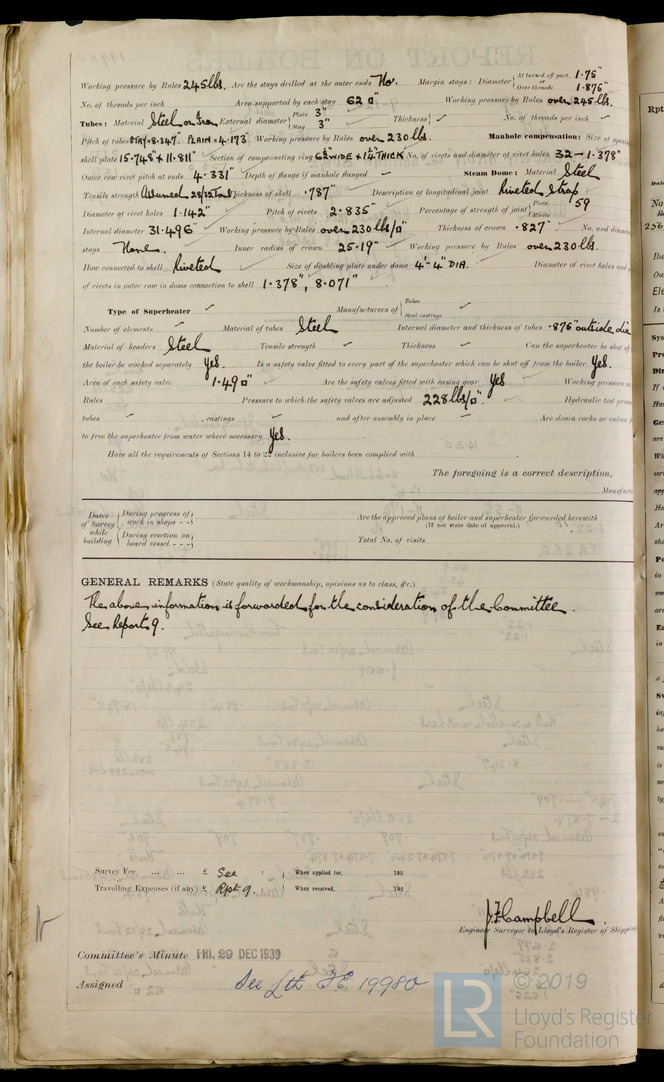 Working pressure by Rules 245 lbs. Are the stays drilled at the outer ends No. Margin stays: Diameter { At turned off part, 1.75" or Over threads 1.875"
No. of threads per inch Area supported by each stay 62 □" Working pressure by Rules over 245 lbs.
Tubes: Material Steel or Iron External diameter { Plain 3" Stay 3" Thickness { No. of threads per inch
Pitch of tubes STAY=8.347" PLAIN=4.173" Working pressure by Rules over 230 lbs. Manhole compensation: Size of
shell plate 15.748" x 11.811" Section of compensating ring 6½" WIDE x 1¼" THICK No. of rivets and diameter of rivet holes 32 - 1.378"
Outer row rivet pitch at ends 4.331" Depth of flange if manhole flanged Steam Dome: Material Steel
Tensile strength Assumed 28/32 Tons Thickness of shell .787" Description of longitudinal joint Riveted Strap
Diameter of rivet holes 1.142" Pitch of rivets 2.835" Percentage of strength of joint { Plate 59 Rivets
Internal diameter 31.496" Working pressure by Rules over 230 lbs/□" Thickness of crown .827" No. and
stays None. Inner radius of crown 25.19" Working pressure by Rules over 230 lbs.
How connected to shell Riveted Size of doubling plate under dome 4'-4" DIA. Diameter of rivet holes and
of rivets in outer row in dome connection to shell 1.378", 8.071"
Type of Superheater Manufacturers of { Tubes Steel castings
Number of elements Material of tubes Steel Internal diameter and thickness of tubes .876" outside dia
Material of headers Steel Tensile strength Thickness Can the superheater be shut
the boiler be worked separately Yes. Is a safety valve fitted to every part of the superheater which can be shut off from the boiler Yes.
Area of each safety valve 1.49 □" Are the safety valves fitted with easing gear Yes Working pressure
Rules Pressure to which the safety valves are adjusted 228 lbs/□". Hydraulic test
tubes , castings and after assembly in place Are drain cocks or valves
to free the superheater from water where necessary Yes.
Have all the requirements of Sections 14 to 22 inclusive for boilers been complied with
The foregoing is a correct description,
Dates of Survey while building { During progress of work in shops - - During erection on board vessel - - - }
Are the approved plans of boiler and superheater forwarded herewith
(If not state date of approval.)
Total No. of visits
GENERAL REMARKS (State quality of workmanship, opinions as to class, &c.)
The above information is forwarded for the consideration of the Committee.
See Report 9.
Survey Fee ... ... £ See : : When applied for, 192
Travelling Expenses (if any) £ Rpt 9. : When received, 192
J.F. Campbell.
Engineer Surveyor to Lloyd's Register of
Committee's Minute FRI. 29 DEC 1939
Assigned See Lth. F.E. 19980
© 2019
LR
Lloyd's Register
Foundation